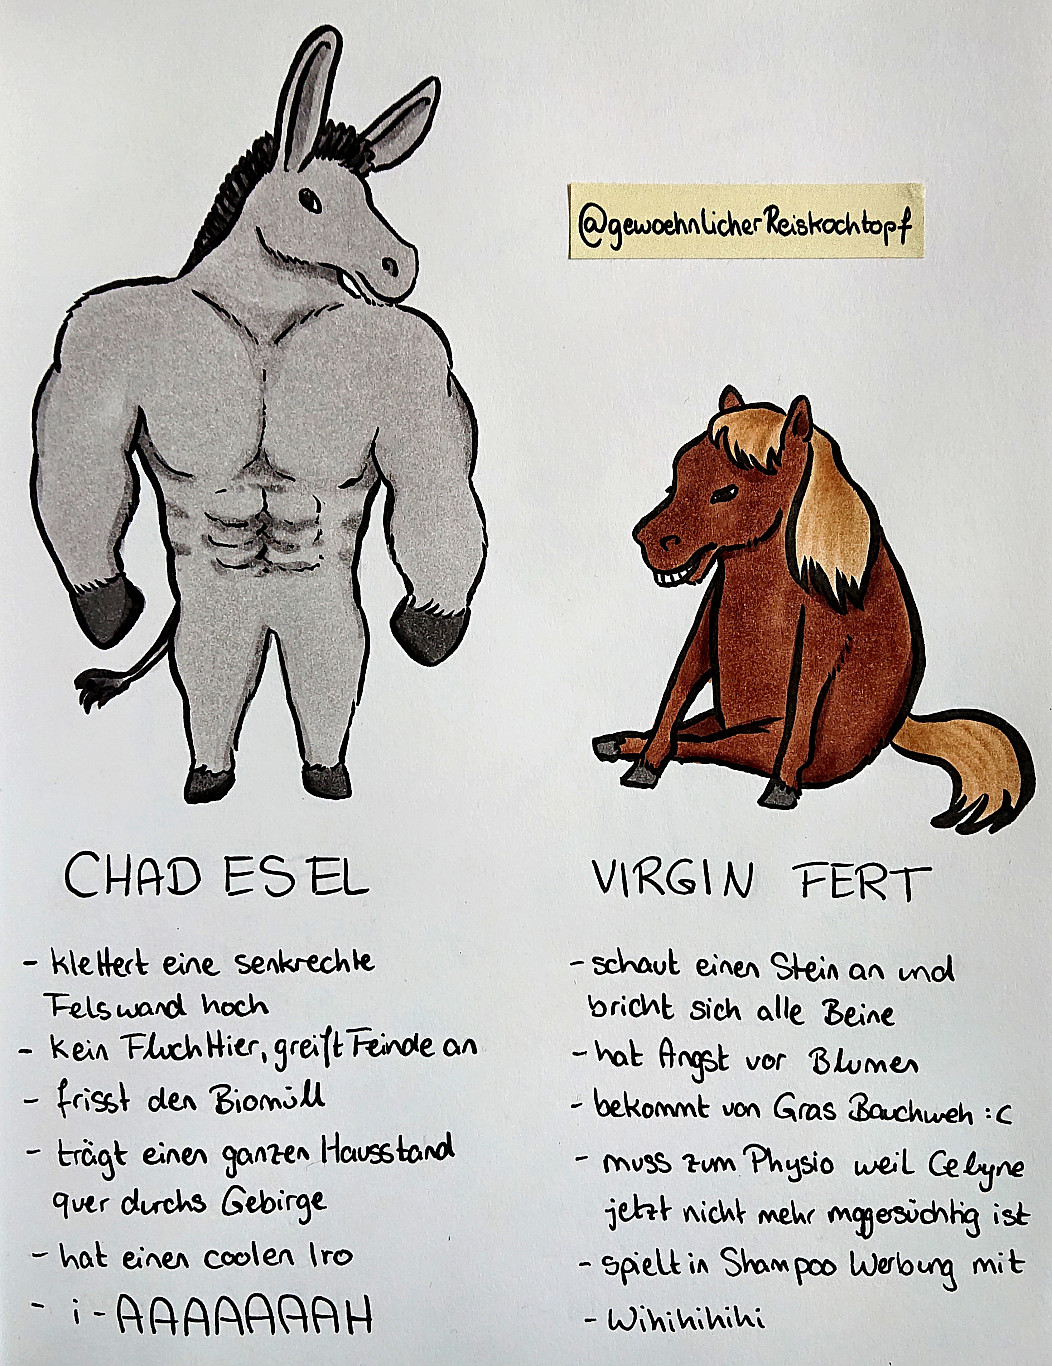 @gewoehnlicherReiskochtopf
CHAD ESEL
- klettert eine senkrechte
Felswand hoch
- kein Fluchttier, greift Feinde an
- frisst den Biomüll
- trägt einen ganzen Hausstand
quer durchs Gebirge
- hat einen coolen Iro
- i-AAAAAAAH
VIRGIN FERT
- schaut einen Stein an und
bricht sich alle Beine
- hat Angst vor Blumen
- bekommt von Gras Bauchweh :C
- muss zum Physio weil Celyne
jetzt nicht mehr magersüchtig ist
- spielt in Shampoo Werbung mit
- Wihihihihi